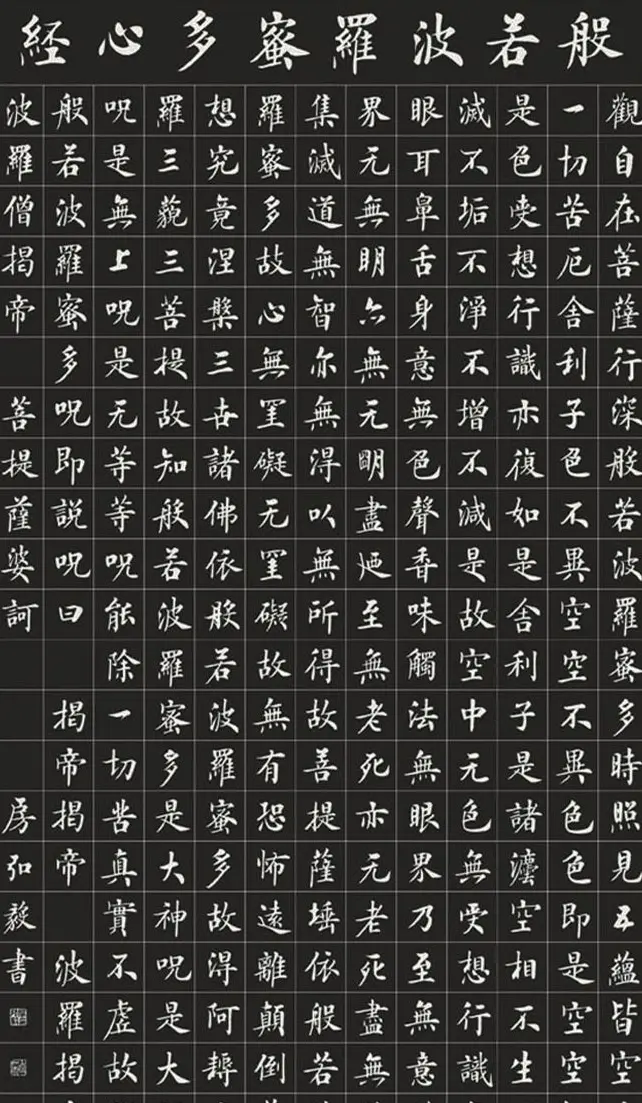 般若波羅蜜多心經
觀自在菩薩行深般若波羅蜜多時照見五蘊皆空
一切苦厄舍利子色不異空空不異色色即是空空
是色受想行識亦復如是舍利子是諸灋空相不生
滅不垢不淨不增不減是故空中无色無受想行識
眼耳鼻舌身意無色聲香味觸法無眼界乃至無意
界无無明亦無无明盡廼至無老死亦无老死盡無
集滅道無智亦無得以無所得故善提薩埵依般若
羅蜜多故心無罣礙无罣礙故無有恐怖遠離顛倒
想究竟涅槃三世諸佛依般若波羅蜜多故得阿耨
羅三藐三菩提故知般若波羅蜜多是大神呪是大
呪是無上呪是无等等呪能除一切苦真實不虛故
般若波羅蜜多呪即説呪曰 揭帝揭帝 波羅揭
波羅僧揭帝 菩提薩婆訶 房弘毅書